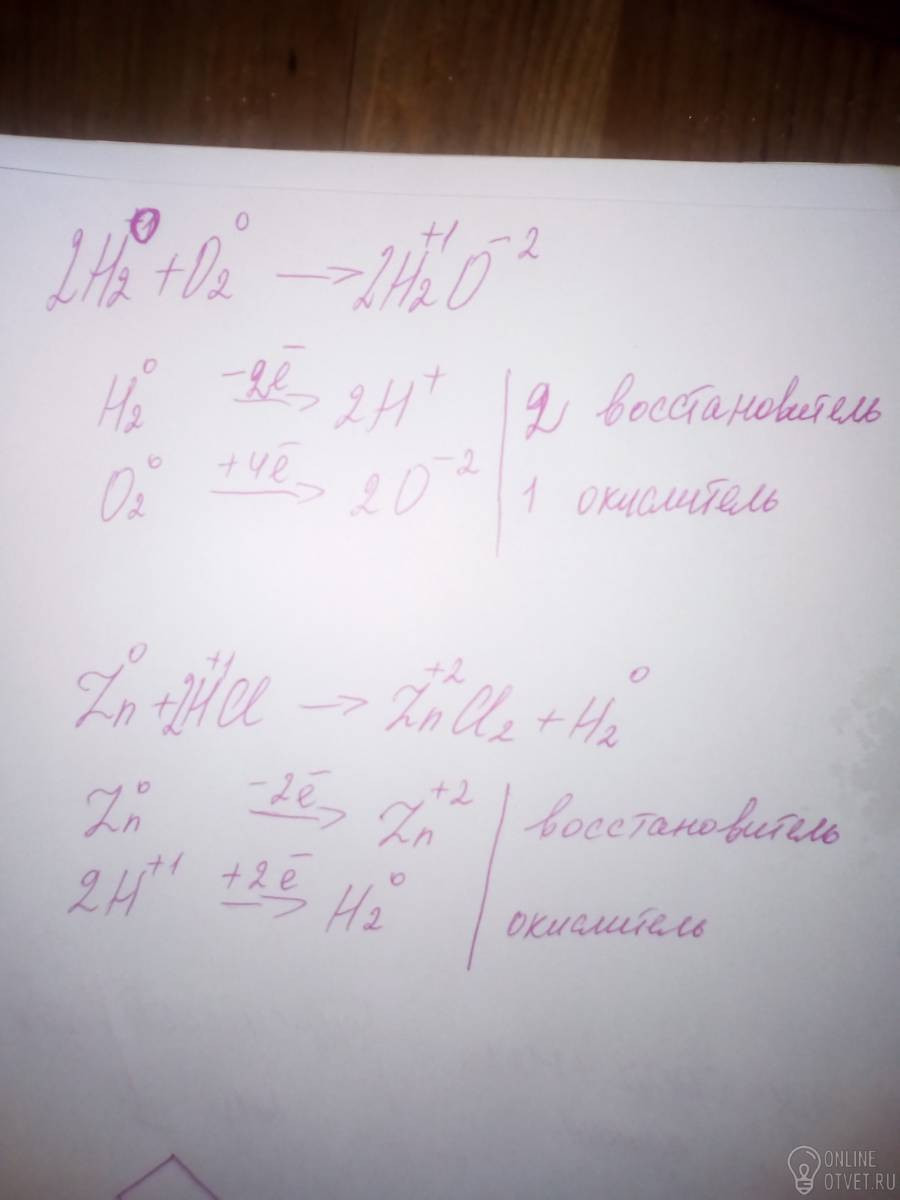 2H₂⁰ + O₂⁰ → 2H₂⁺¹O⁻²
H₂⁰ −2ē → 2H⁺ | 2 восстановитель
O₂⁰ +4ē → 2O⁻² | 1 окислитель
Zn⁰ + 2H⁺¹Cl → Zn⁺²Cl₂ + H₂⁰
Zn⁰ −2ē → Zn⁺² | восстановитель
2H⁺¹ +2ē → H₂⁰ | окислитель
ONLINE
OTVET.RU